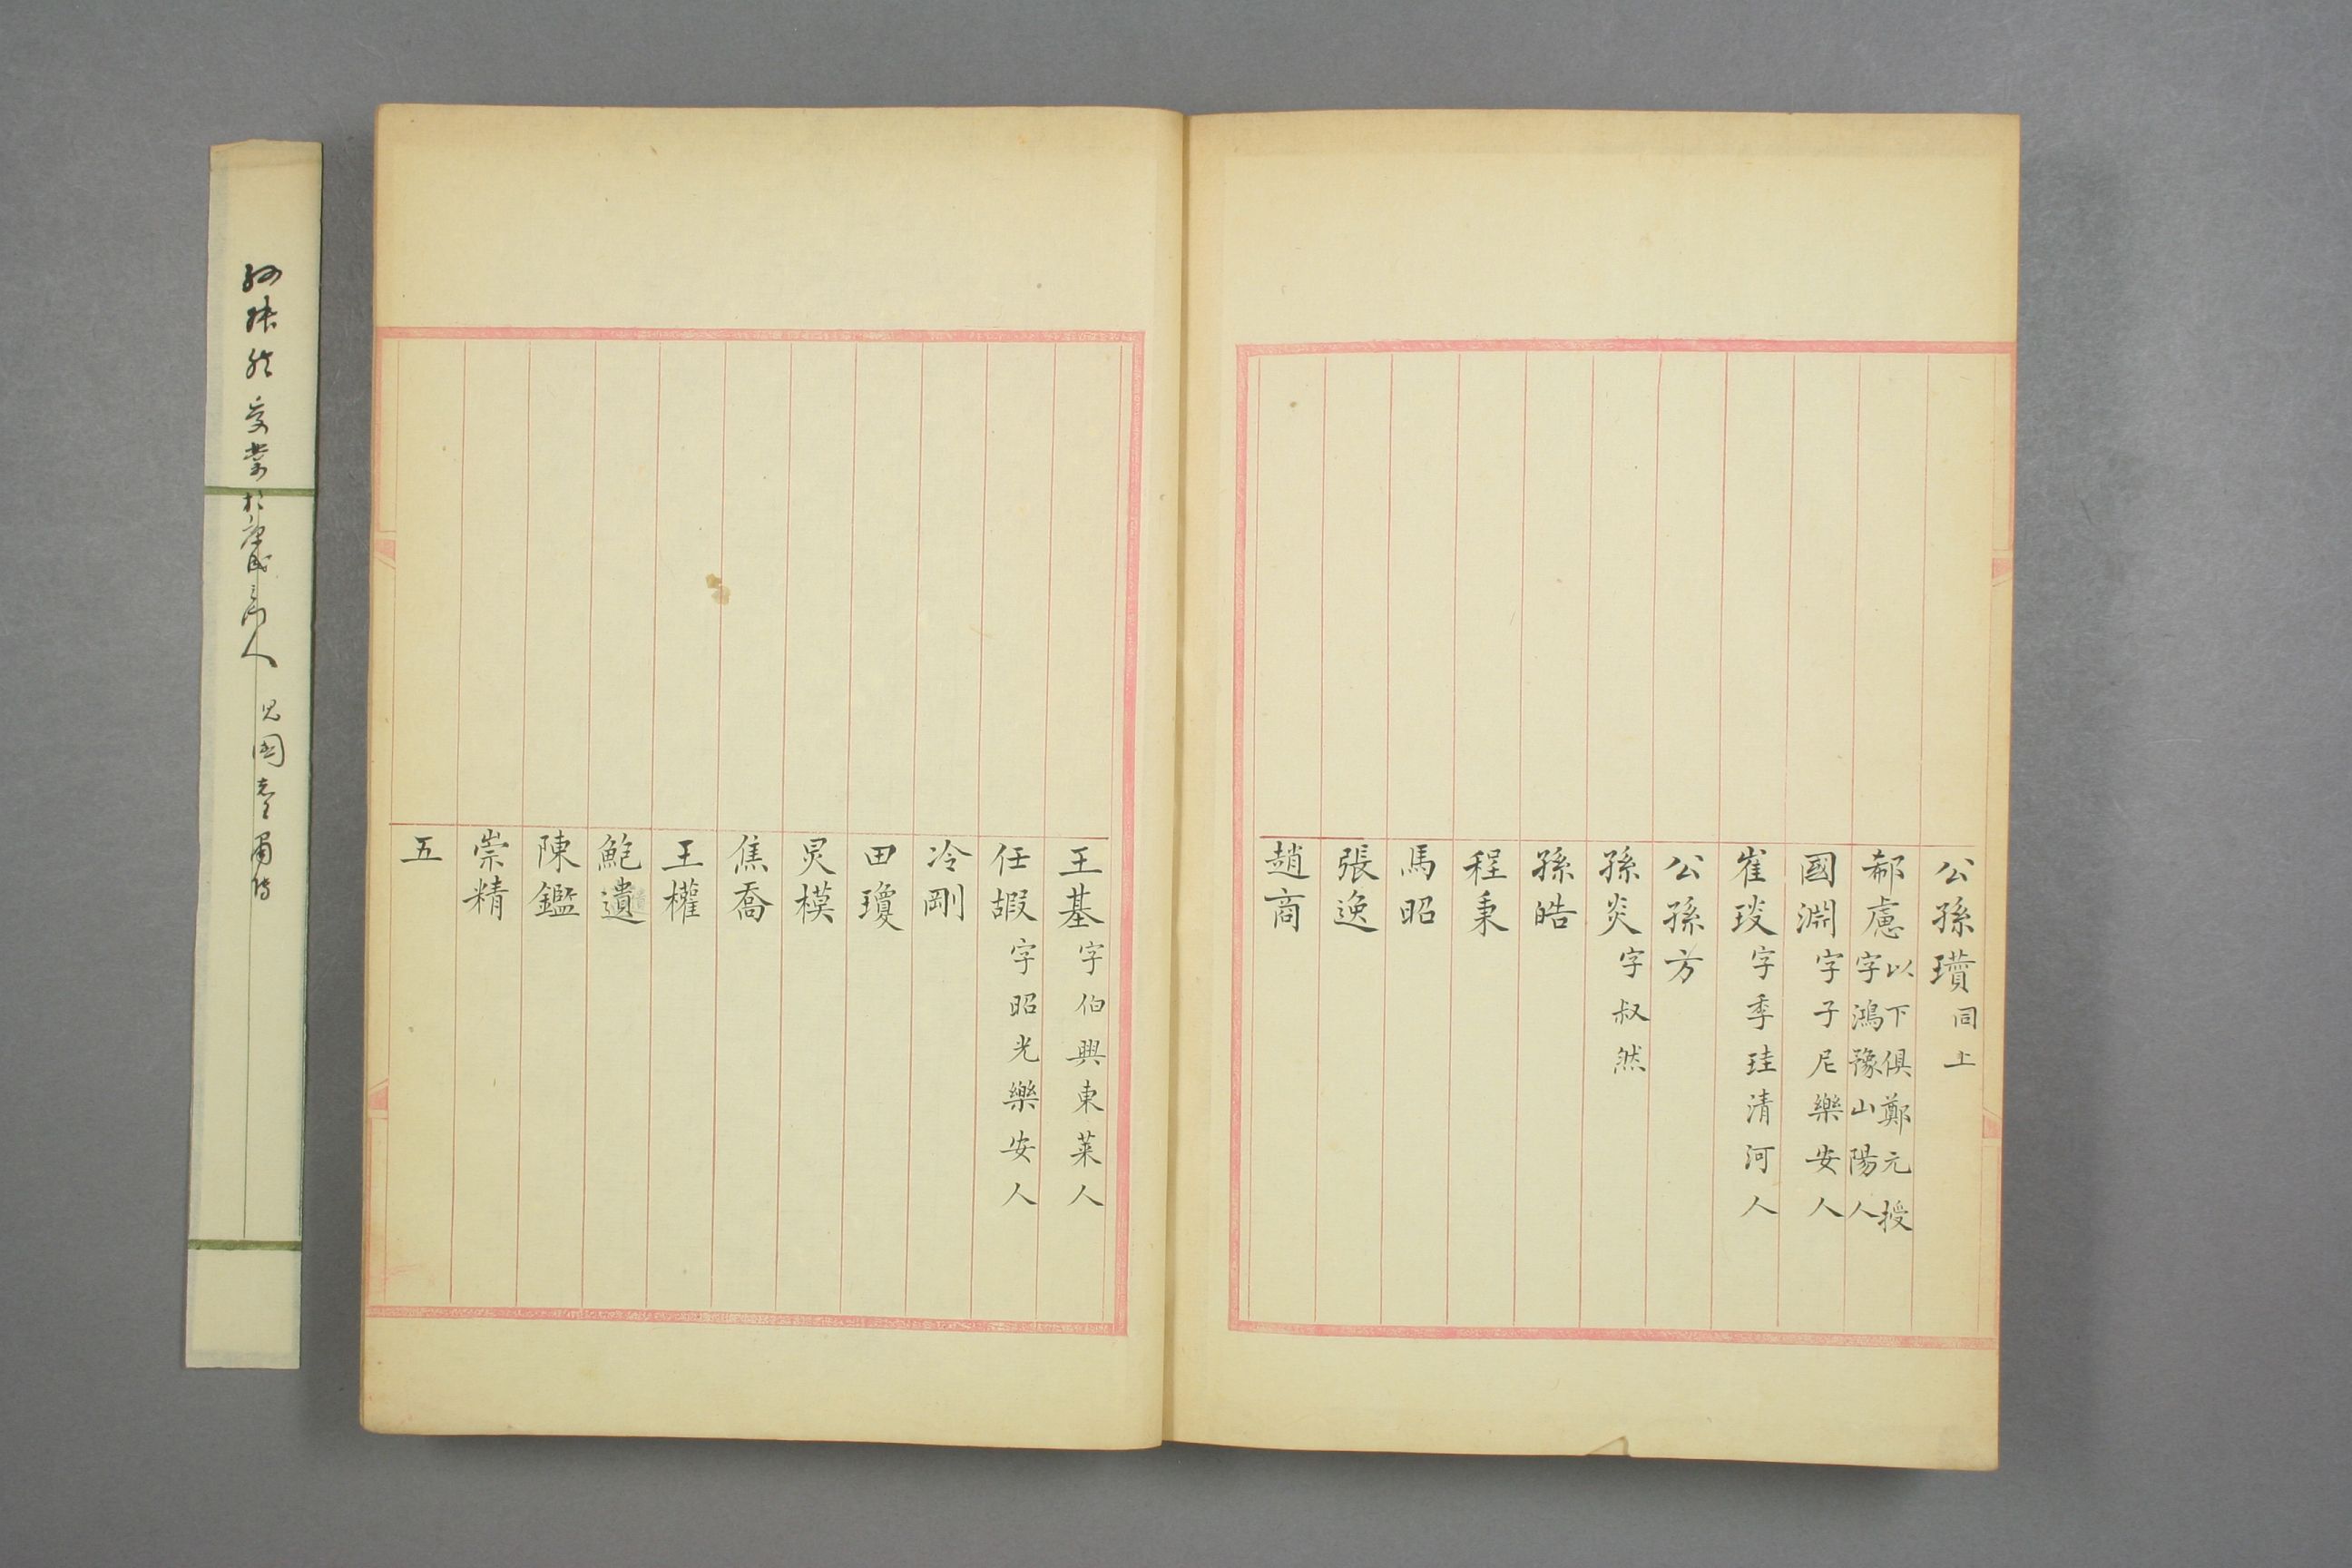 公孫瓚同上
郗慮以下俱鄭元授
字鴻豫山陽人
國淵字子尼樂安人
崔琰字季珪清河人
公孫方
孫炎字叔然
孫皓
程秉
馬昭
張逸
趙商
王基字伯輿東萊人
任嘏字昭光樂安人
冷剛
田瓊
炅模
焦喬
王權
鮑遺
陳鑑
崇精
五
孫叔然受業於康成之門人 見國志王肅傳